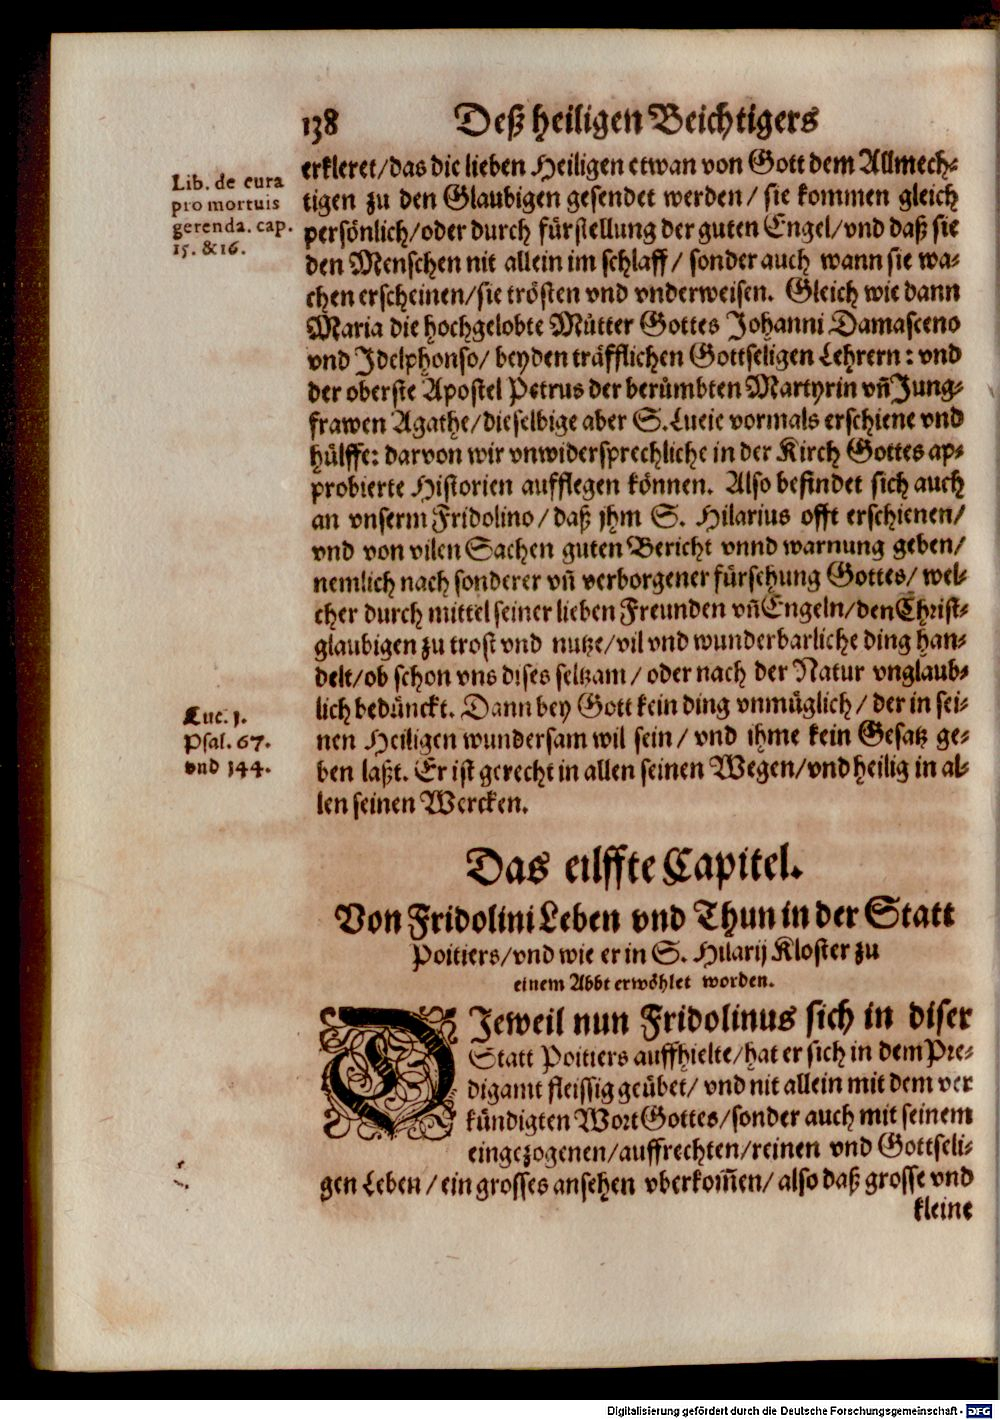 138 Deß heiligen Beichtigers
erkleret/das die lieben Heiligen etwan von Gott dem Allmech-
tigen zu den Glaubigen gesendet werden/ sie kommen gleich
persönlich/oder durch fürstellung der guten Engel/vnd daß sie
den Menschen nit allein im schlaff/ sonder auch wann sie wa-
chen erscheinen/sie trösten vnd vnderweisen. Gleich wie dann
Maria die hochgelobte Mütter Gottes Johanni Damasceno
vnd Jdelphonso/ beyden träfflichen Gottseligen Lehrern: vnd
der oberste Apostel Petrus der berümbten Martyrin vn̄ Jung-
frawen Agathe/dieselbige aber S. Lucie vormals erschiene vnd
hülffe: darvon wir vnwidersprechliche in der Kirch Gottes ap-
probierte Historien aufflegen können. Also befindet sich auch
an vnserm Fridolino/ daß jhm S. Hilarius offt erschienen/
vnd von vilen Sachen guten Bericht vnnd warnung geben/
nemlich nach sonderer vn̄ verborgener fürsehung Gottes/ wel-
cher durch mittel seiner lieben Freunden vn̄ Engeln/den Christ-
glaubigen zu trost vnd nutze/vil vnd wunderbarliche ding han-
delt/ob schon vns dises seltzam/ oder nach der Natur vnglaub-
lich bedünckt. Dann bey Gott kein ding vnmüglich/ der in sei-
nen Heiligen wundersam wil sein/ vnd ihme kein Gesatz ge-
ben laßt. Er ist gerecht in allen seinen Wegen/vnd heilig in al-
len seinen Wercken.
Lib. de cura
pro mortuis
gerenda. cap.
15. & 16.
Luc. 1.
Psal. 67.
vnd 144.
Das eilffte Capitel.
Von Fridolini Leben vnd Thun in der Statt
Poitiers/vnd wie er in S. Hilarij Kloster zu
einem Abbt erwöhlet worden.
DJeweil nun Fridolinus sich in diser
Statt Poitiers auffhielte/hat er sich in dem Pre-
digamt fleissig geübet/ vnd nit allein mit dem ver
kündigten Wort Gottes/sonder auch mit seinem
eingezogenen/auffrechten/reinen vnd Gottseli-
gen Leben/ ein grosses ansehen vberkom̄en/ also daß grosse vnd
kleine
Digitalisierung gefördert durch die Deutsche Forschungsgemeinschaft - DFG